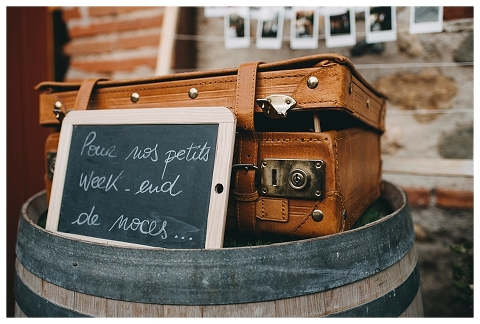 Pour nos petits
week-end
de noces...